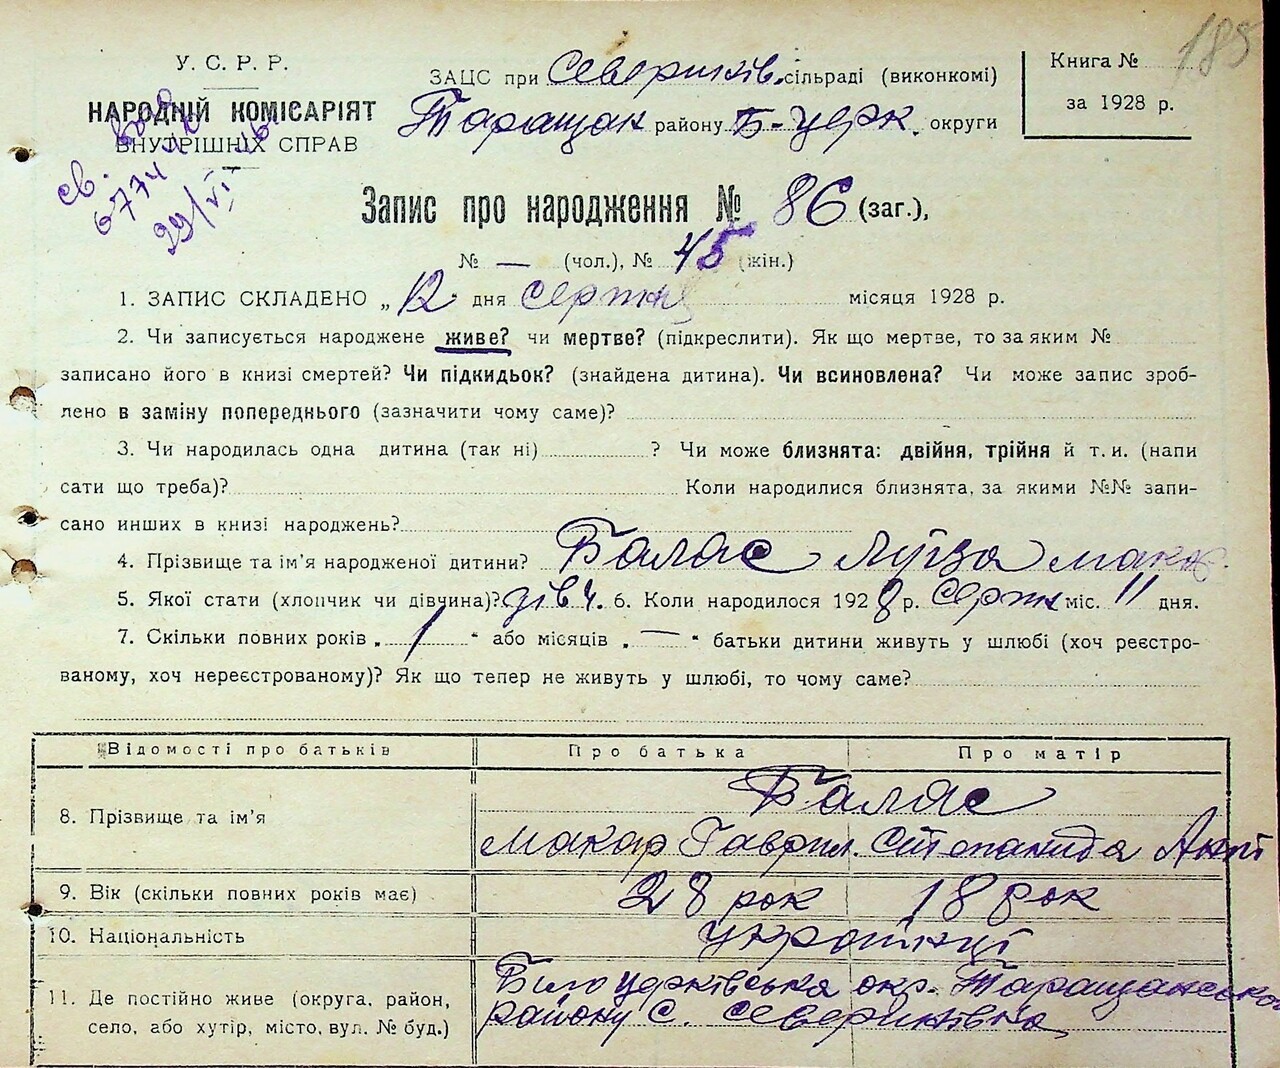 185
У. С. Р. Р.
НАРОДНІЙ КОМІСАРІЯТ
ВНУТРІШНІХ СПРАВ
св.
6774
29/VI
ЗАЦС при Северинів. сільраді (виконкомі)
Таращак району Б-церк. округи
Книга №
за 1928 р.
Запис про народження № 86 (заг.),
№ — (чол.), № 45 (жін.)
1. ЗАПИС СКЛАДЕНО „12" дня серпня місяця 1928 р.
2. Чи записується народжене живе? чи мертве? (підкреслити). Як що мертве, то за яким №
записано його в книзі смертей? Чи підкидьок? (знайдена дитина). Чи всиновлена? Чи може запис зроб-
лено в заміну попереднього (зазначити чому саме)?
3. Чи народилась одна дитина (так ні) ? Чи може близнята: двійня, трійня й т. и. (напи
сати що треба)? Коли народилися близнята, за якими №№ запи-
сано инших в книзі народжень?
4. Прізвище та ім'я народженої дитини? Балас Луїза Макар.
5. Якої стати (хлопчик чи дівчина)? дівч. 6. Коли народилося 1928 р. Серпн міс. 11 дня.
7. Скільки повних років „ 1 " або місяців „ — " батьки дитини живуть у шлюбі (хоч реєстро-
ваному, хоч нереєстрованому)? Як що тепер не живуть у шлюбі, то чому саме?
Відомості про батьків Про батька Про матір
8. Прізвище та ім'я Балас
Макар Гаврил. Степанида Ант
9. Вік (скільки повних років має) 28 рок 18 рок
10. Національність українці
11. Де постійно живе (округа, район, Білоцерківська окр. Таращансько
село, або хутір, місто, вул. № буд.) району С. Северинівка